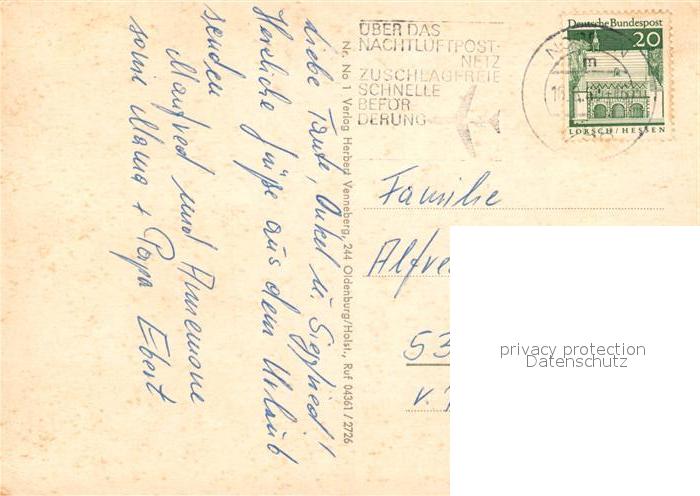 Liebe Tante, Onkel u. Siegfried!
Herzliche Grüße aus dem Urlaub
senden
Manfred und Annemarie
sowie Mama + Papa Ebert
Nr. No 1 Verlag Herbert Venneberg, 244 Oldenburg/Holst., Ruf 04361 / 2726
ÜBER DAS
NACHTLUFTPOST-
NETZ
ZUSCHLAGFREIE
SCHNELLE
BEFÖR
DERUNG
m
Deutsche Bundespost
20
LORSCH/HESSEN
Familie
53
v.
privacy protection
Datenschutz